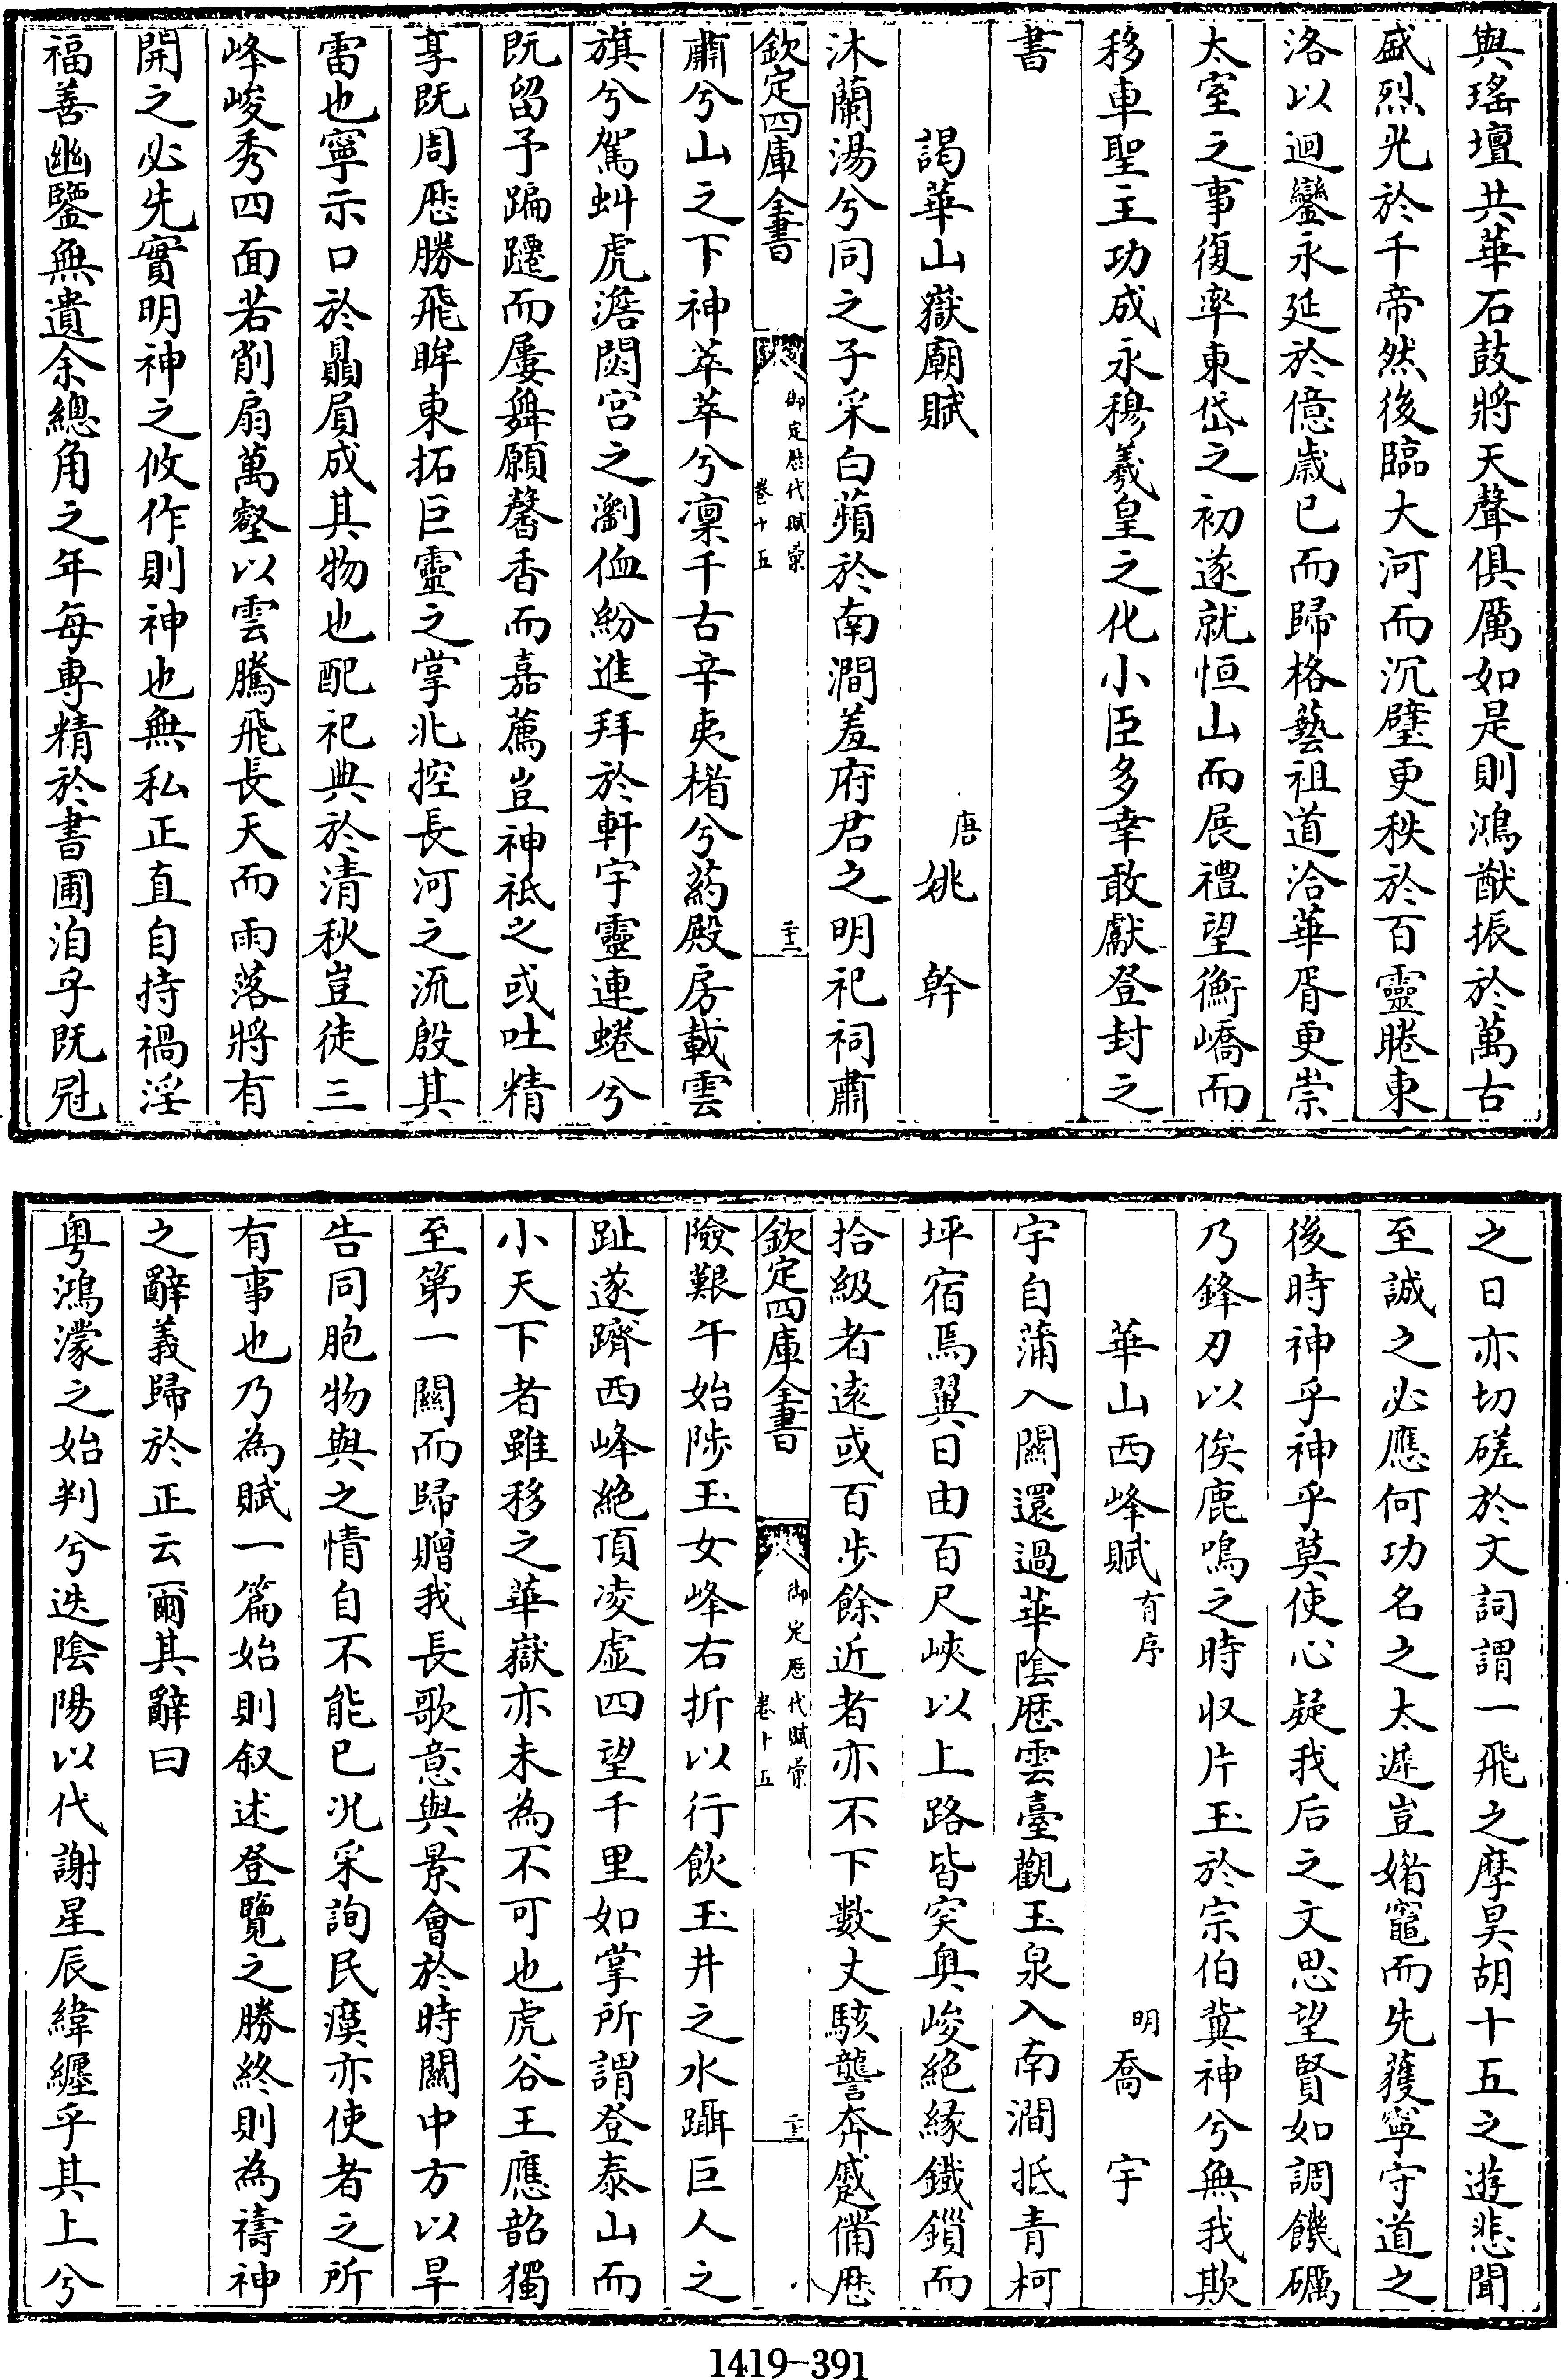 與瑤壇共華石鼓將天聲俱厲如是則鴻猷振於萬古
盛烈光於千帝然後臨大河而沉璧更秩於百靈睠東
洛以迴鑾永延於億歲已而歸格藝祖道洽華胥更崇
太室之事復率東岱之初遂就恒山而展禮望衡嶠而
移車聖主功成永穆羲皇之化小臣多幸敢獻登封之
書
謁華山嶽廟賦 唐 姚幹
沐蘭湯兮同之子采白蘋於南澗羞府君之明祀祠肅
欽定四庫全書 御定歷代賦彙 卷十五
肅兮山之下神萃萃兮凜千古辛夷楣兮葯殿房載雲
旗兮駕虬虎澹閟宮之瀏侐紛進拜於軒宇靈連蜷兮
既留予蹁躚而屢舞願馨香而嘉薦豈神祇之或吐精
享既周歷勝飛眸東拓巨靈之掌北控長河之流殷其
雷也寧示口於贔屓成其物也配祀典於清秋豈徒三
峰峻秀四面若削扇萬壑以雲騰飛長天而雨落將有
開之必先實明神之攸作則神也無私正直自持禍淫
福善幽鑒無遺余總角之年每專精於書圃洎乎既冠
之日亦切磋於文詞謂一飛之摩昊胡十五之遊悲聞
至誠之必應何功名之太遲豈媚竈而先獲寧守道之
後時神乎神乎莫使心疑我后之文思望賢如調饑礪
乃鋒刃以俟鹿鳴之時収片玉於宗伯冀神兮無我欺
華山西峰賦 有序 明 喬宇
宇自蒲入關還過華陰歷雲臺觀玉泉入南澗抵青柯
坪宿焉翼日由百尺峽以上路皆突奥峻絕緣鐵鎖而
拾級者遠或百步餘近者亦不下數丈駭讋奔蹙備歷
欽定四庫全書 御定歷代賦彙 卷十五
險艱午始陟玉女峰右折以行飲玉井之水躡巨人之
趾遂躋西峰絕頂凌虛四望千里如掌所謂登泰山而
小天下者雖移之華嶽亦未為不可也虎谷王應韶獨
至第一關而歸贈我長歌意與景會於時關中方以旱
告同胞物與之情自不能已况采詢民瘼亦使者之所
有事也乃為賦一篇始則叙述登覽之勝終則為禱神
之辭義歸於正云爾其辭曰
粵鴻濛之始判兮迭陰陽以代謝星辰緯纏乎其上兮
1419-391